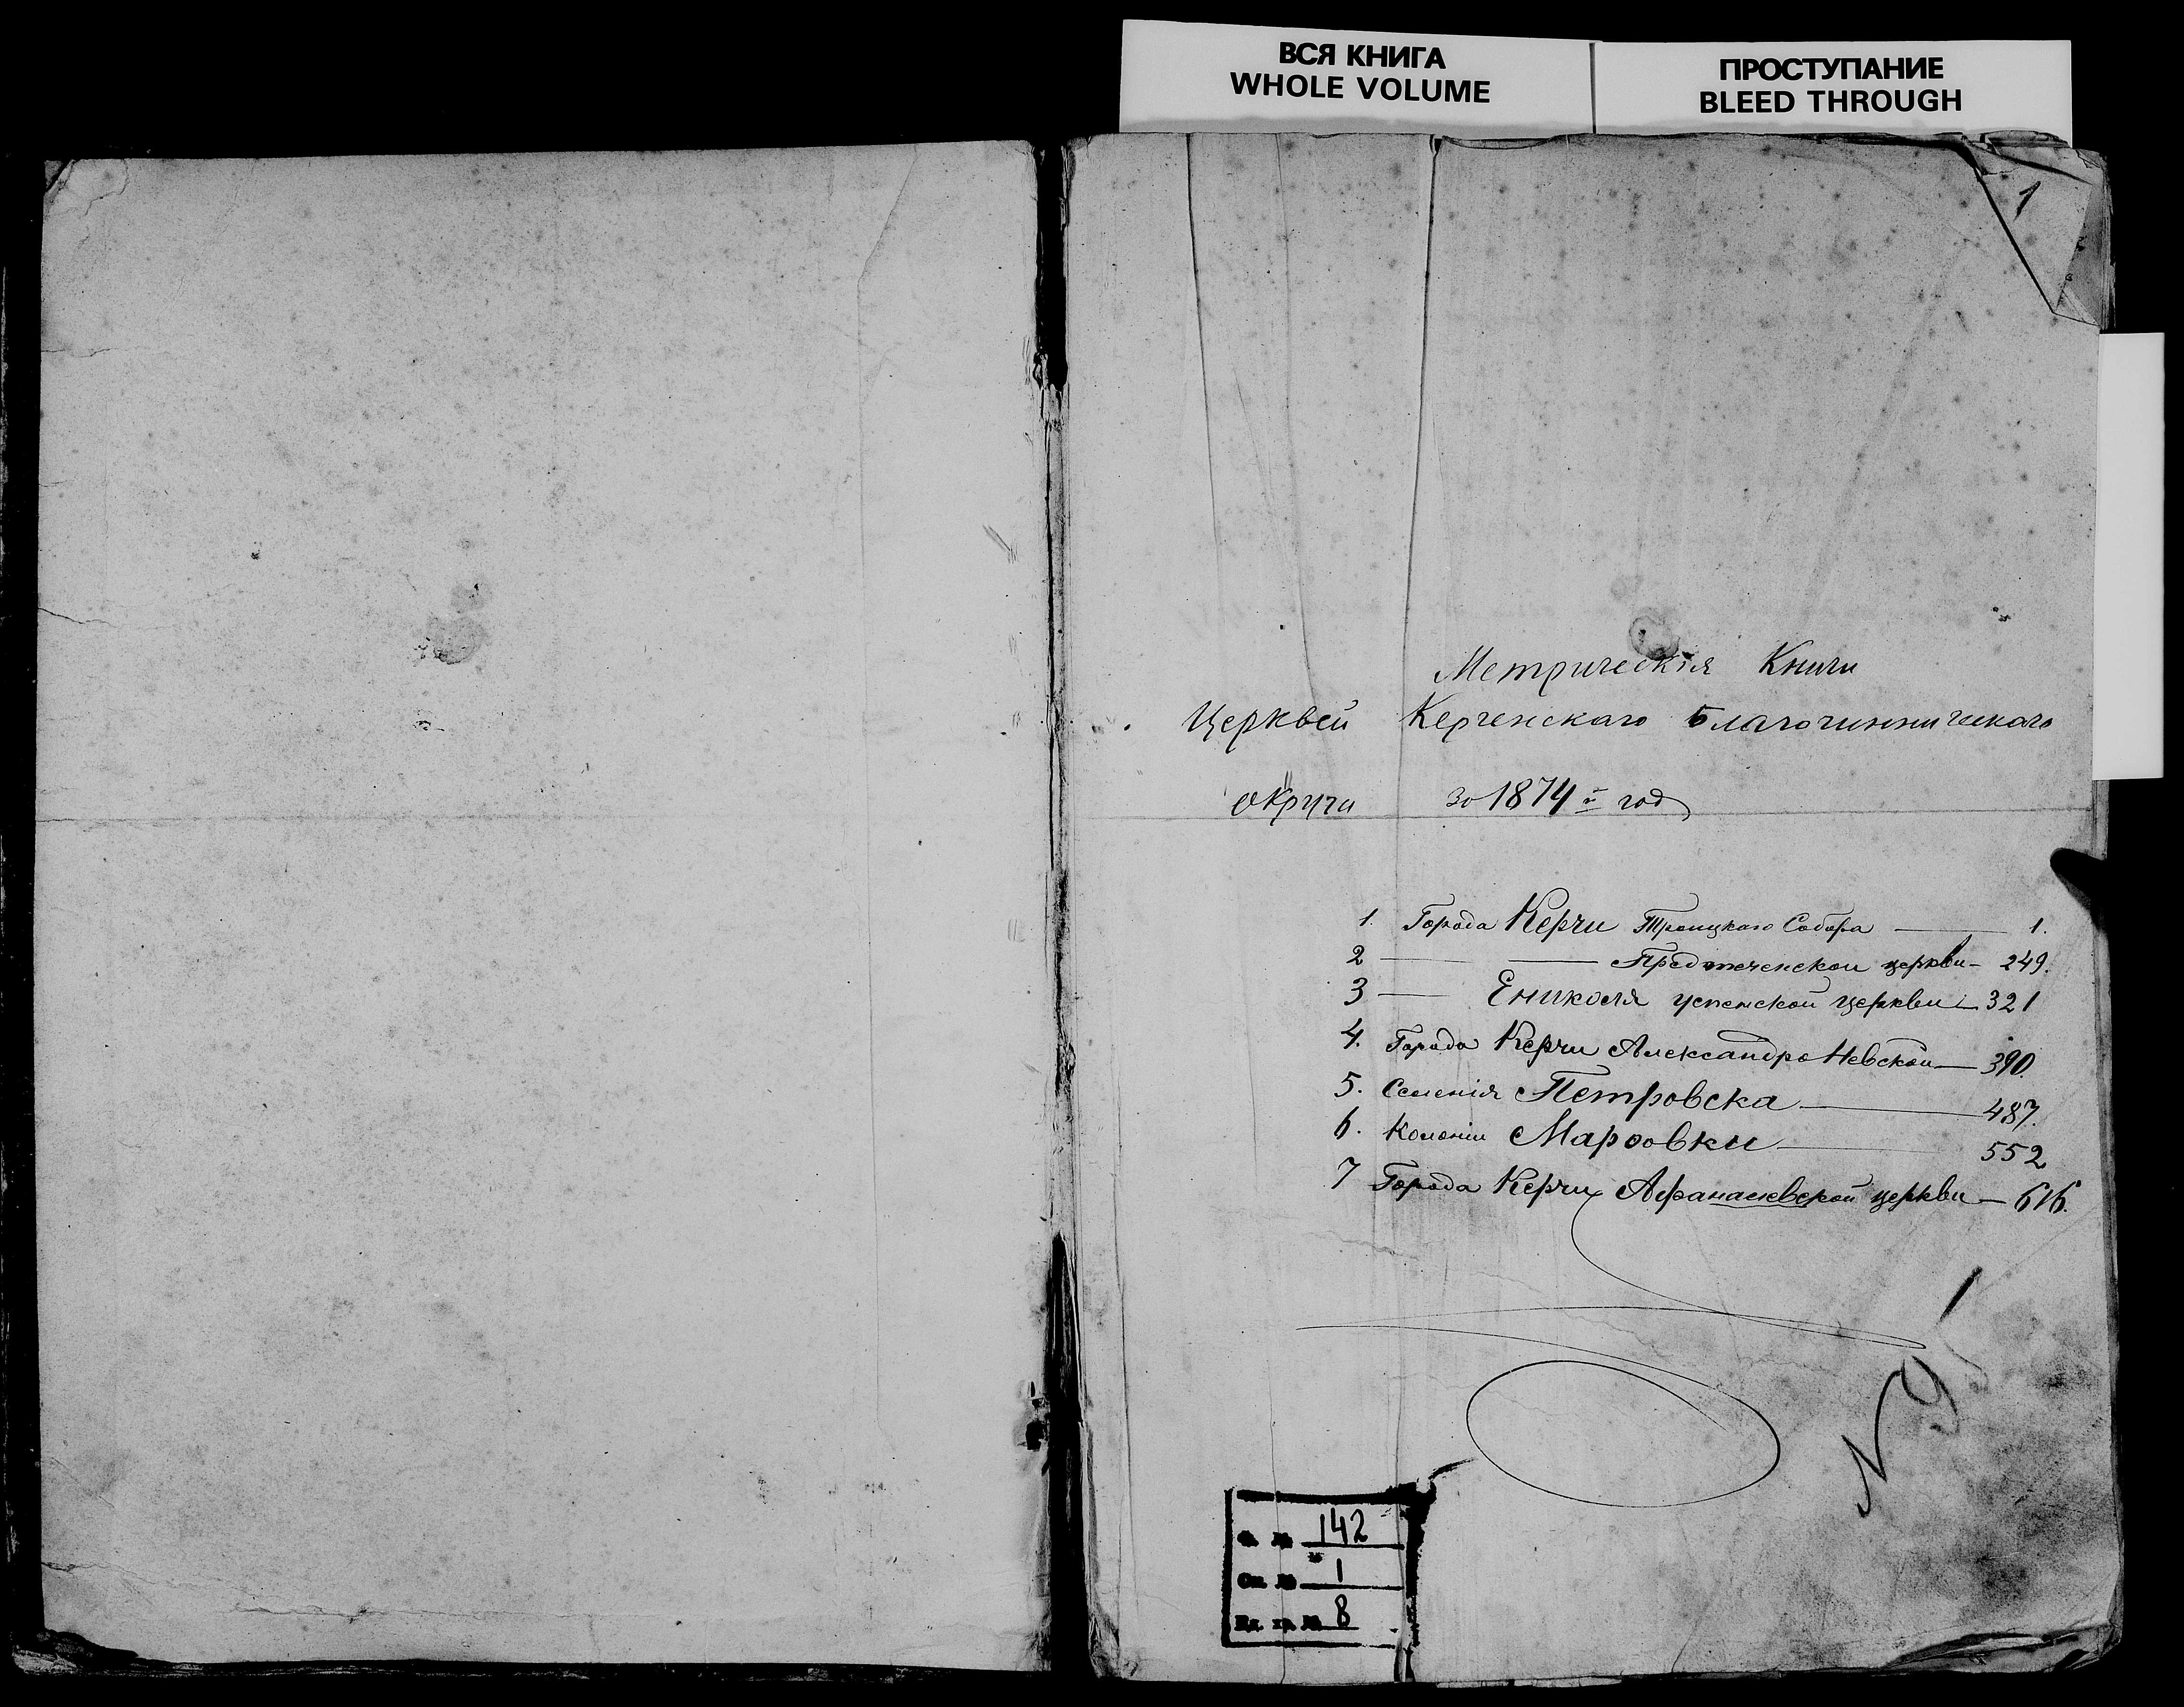 ВСЯ КНИГА
WHOLE VOLUME
ПРОСТУПАНИЕ
BLEED THROUGH
1
Метрическія Книги
Церквей Керченскаго Благочинническаго
округа за 1874й год
1. Города Керчи Троицкаго Собора — 1.
2 — — Предтеченской церкви — 249.
3 — Ениколя успенской церкви — 321
4. Города Керчи Александро Невской — 390.
5. Селенія Петровска — 487.
6. Колоніи Марѳовки — 552
7 Города Керчи Афанасиевской церкви — 616.
N 91
Ф. № 142
Оп. № 1
Ед. хр. № 8